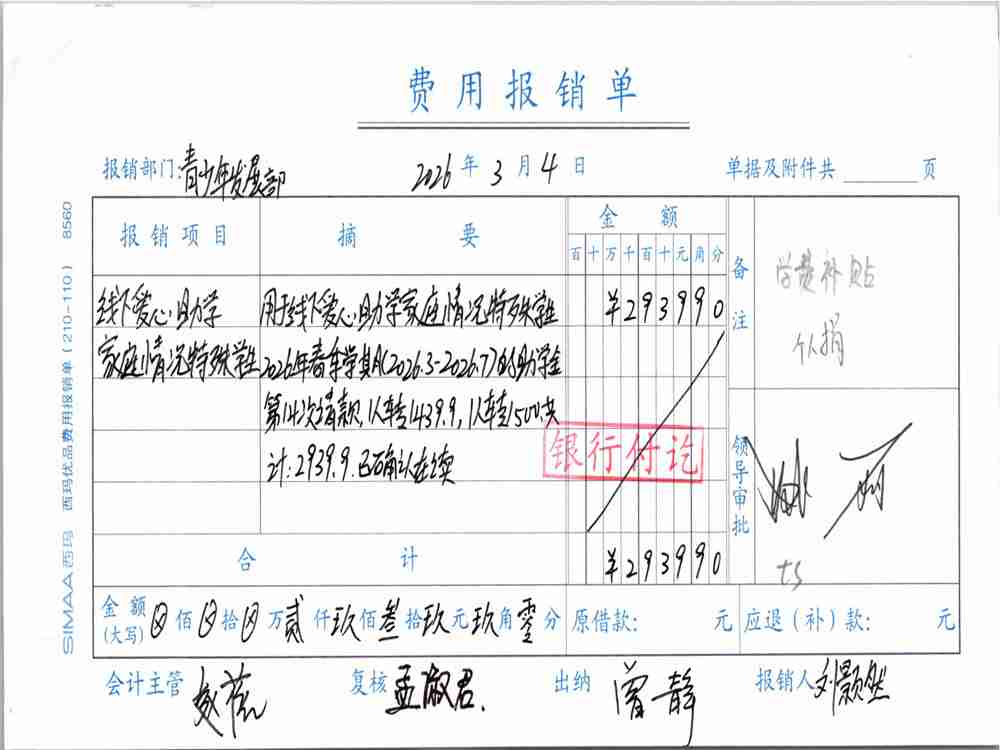 费用报销单
报销部门:青少年发展部 2026年3月4日 单据及附件共 页
SIMAA西玛 西玛优品费用报销单(210-110) 8560
报销项目 摘要 金额 备注
百十万千百十元角分
线下爱心助学 用于线下爱心助学家庭情况特殊学生 ¥293990
家庭情况特殊学生 2026年春季学期(2026.3-2026.7)的助学金
第14次请款,1人转1439.9,1人转1500.共
计:2939.9.已确认在续
学费补贴
仅捐
银行付讫
领导审批
ts
合计 ¥293990
金额(大写) 佰 拾 万贰仟玖佰叁拾玖元玖角零分 原借款: 元 应退(补)款: 元
会计主管 复核 孟淑君. 出纳 曾静 报销人 刘颢然